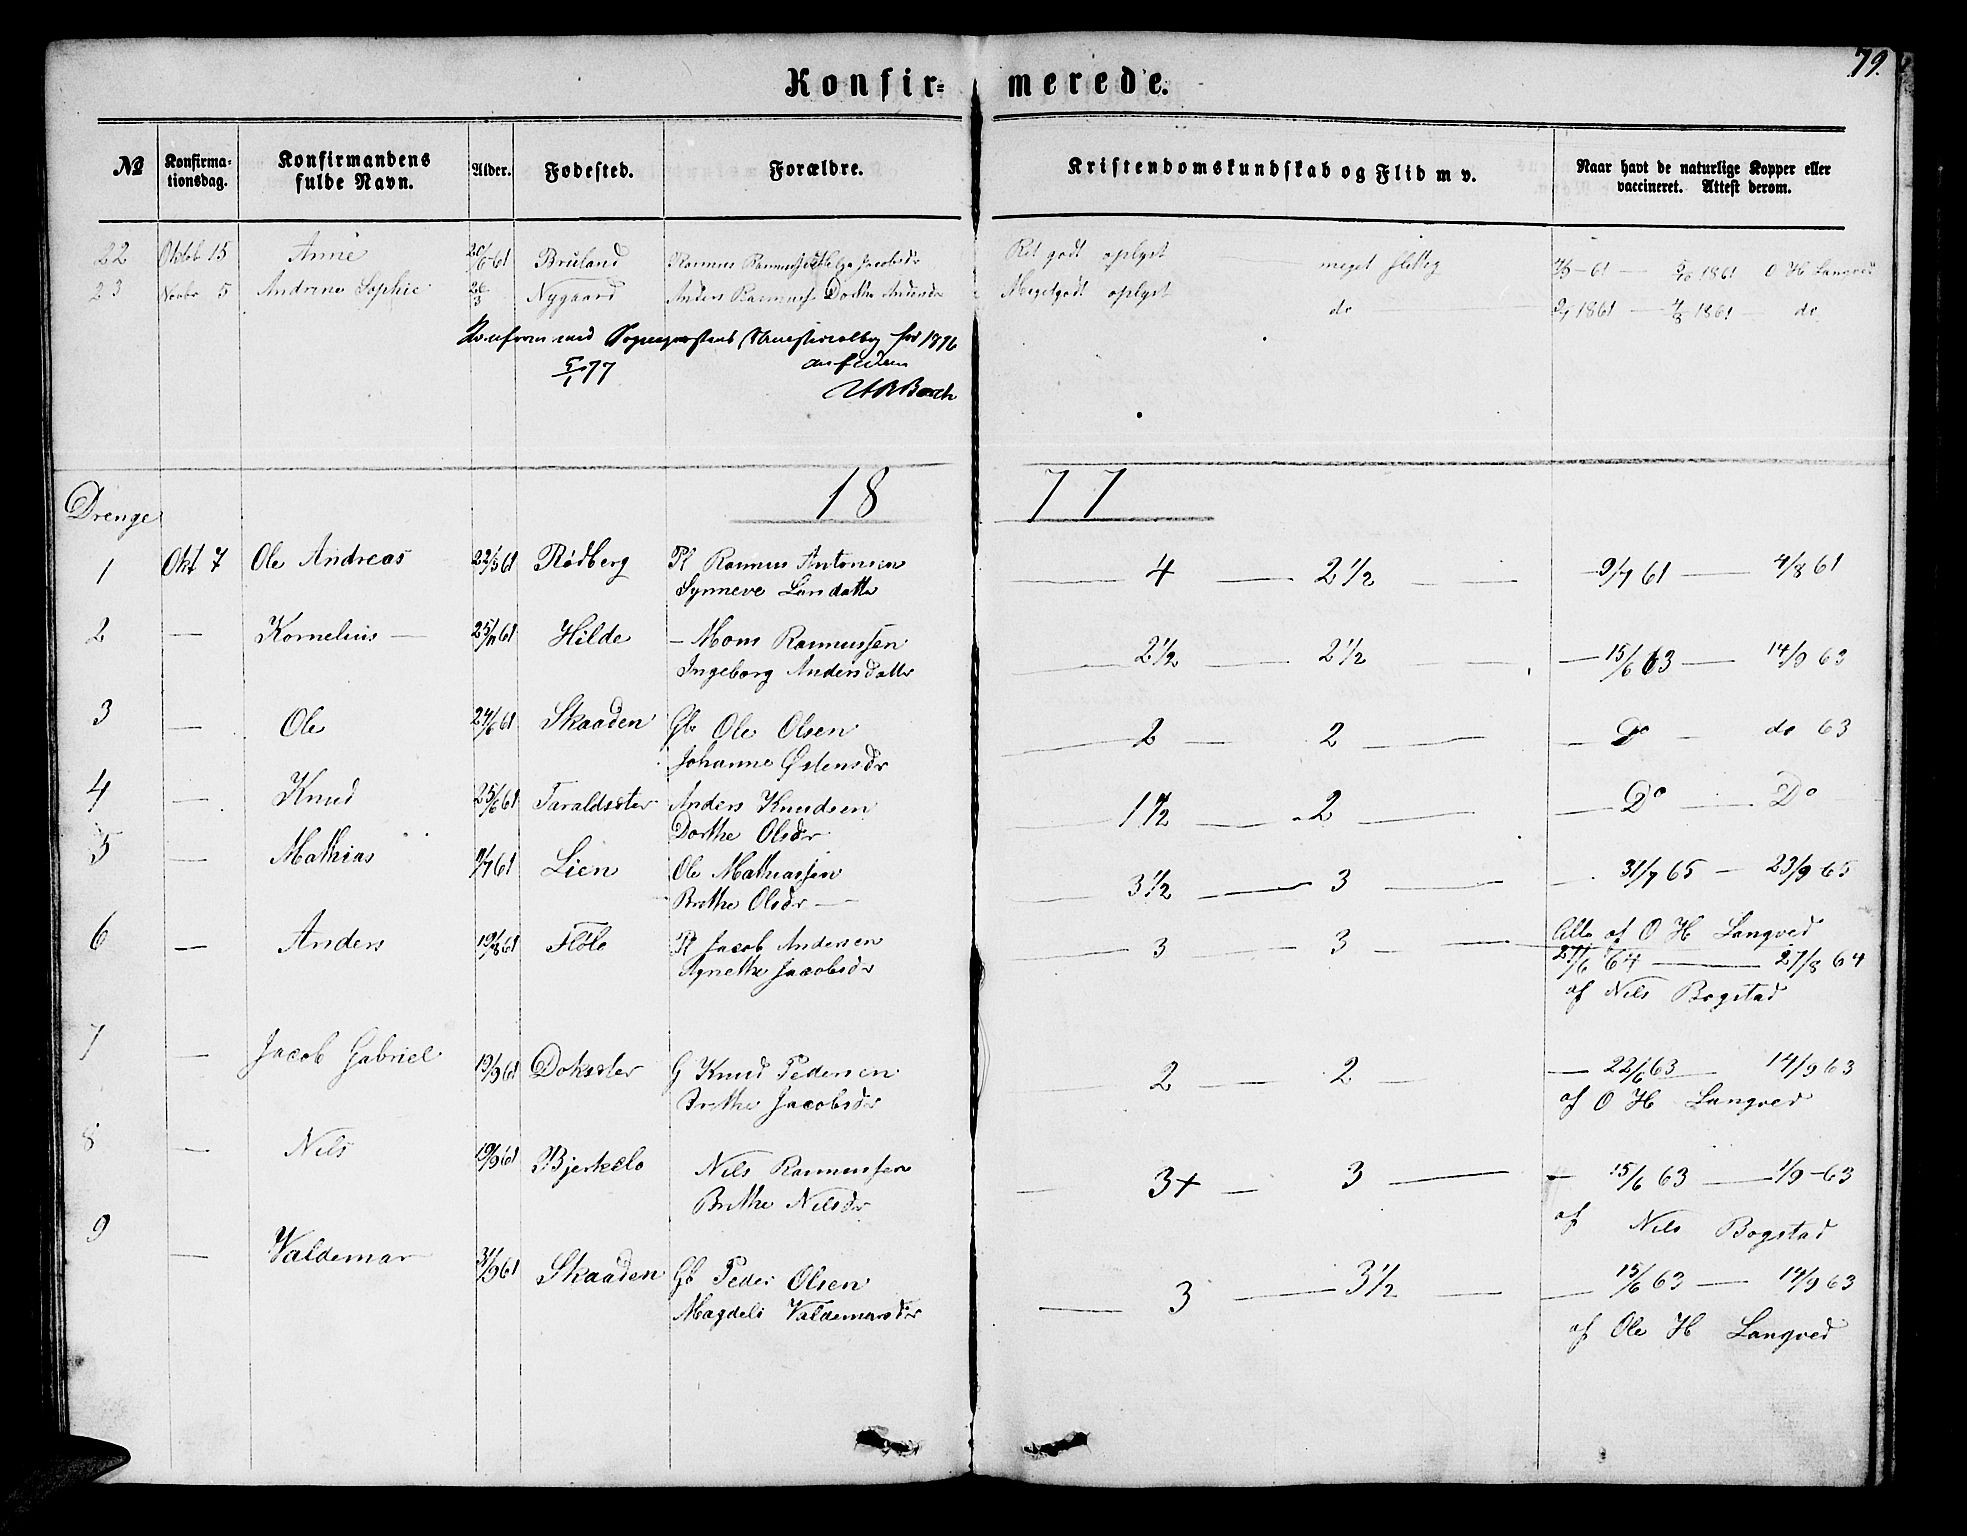 79.
Konfir= merede.
No Konfirma-tionsdag. Konfirmandens fulde Navn. Alder. Fødested. Forældre. Kristendomskundskab og Flid m v. Naar havt de naturlige Kopper eller vaccineret. Attest derom.
22 Oktob 15 Anne 20/6-61 Bruland Rasmus Rasmussen Helga Jacobsdr Ret godt oplyst meget flittig 61 1861 O H Langved
23 Novbr 5 Andrine Sophie 26/3 Nygaard Anders Rasmuss Dorthe Andersdr Megetgodt oplyst do 1861 1861 do
Konform med Sogneprestens Ministerialbog for 1876
5/1 77
18 77
Drenge
1 Okt 7 Ole Andreas 22/5 61 Rødberg Pl Rasmus Antonsen 4 2 1/2 9/7 61 4/8 61
Synneve Larsdatter
2 — Kornelius — 25/11 61 Hilde — Mons Rasmussen 2 1/2 2 1/2 15/6 63 14/9 63
Ingeborg Andersdatter
3 — Ole 24/6 61 Skaaden Gbr Ole Olsen 2 2 Do do 63
Johanne Østensdr
4 — Knud 25/6 61 Taraldsæter Anders Knudsen 1 1/2 2 Do Do
Dorthe Olsdr
5 — Mathias 9/7 61 Lien Ole Mathiassen 3 1/2 3 31/7 65 — 23/9 65
Brithe Olsdr — Alle af O H Langved
6 — Anders 19/8 61 Fløle Pl Jacob Andersen 3 3 27/6 64 27/8 64
Agnethe Jacobsdr af Nils Bogstad
7 — Jacob Gabriel 19/9 61 Doksæter G Knud Pedersen 2 2 22/6 63 14/9 63
Brithe Jacobsdr af O H Langved
8 — Nils 19/9 61 Bjerkelo Nils Rasmussen 3+ 3 15/6 63 1/9-63
Brithe Nilsdr af Nils Bogstad
9 — Valdemar 31/9 61 Skaaden Gb Peder Olsen 3 3 1/2 15/6 63 14/9 63
Magdeli Valdemarsdr af Ole H Langved